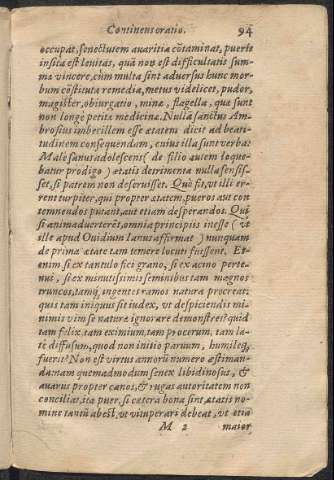 Continens oratio. 94
occupat, senectutem auaritia cōtaminat, pueris
insita est leuitas, quā non est difficultatis sum-
mæ vincere, cùm multa sint aduersus hunc mor-
bum cōstituta remedia, metus videlicet, pudor,
magister, obiurgatio, minæ, flagella, quæ sunt
non longè petita medicina. Nulla sanctus Am-
brosius imbecillem esse ætatem dicit ad beati-
tudinem consequendam, cuius illa sunt verba:
Malè sanus adolescens (de filio autem loque-
batur prodigo) ætatis detrimenta nulla sensis-
set, si patrem non deseruisset. Quò fit, vt illi er-
rent turpiter, qui propter ætatem, pueros aut con
temnendos putant, aut etiam desperandos. Qui
si animaduerterēt, omnia principiis inesse (vt
ille apud Ouidium Ianus affirmat) nunquam
de prima ætate tam temerè locuti fuissent. Et-
enim, si ex tantulo fici grano, si ex acino perte-
nui, si ex minutissimis seminibus tam magnos
truncos, tamq; ingentes ramos natura procreat:
quis tam iniquus sit iudex, vt despiciendis mi-
nimis vim se naturæ ignorare demonstret? quid
tam felix, tam eximium, tam procerum, tam la-
tè diffusum, quod non initio paruum, humileq;
fuerit? Non est virtus annorū numero æstiman-
da: nam quemadmodum senex libidinosus, &
auarus propter canos, & rugas autoritatem non
conciliat, ita puer, si cætera bona sint, ætatis no-
mine tantū abest, vt vituperari debeat, vt etiā
M 2 maior